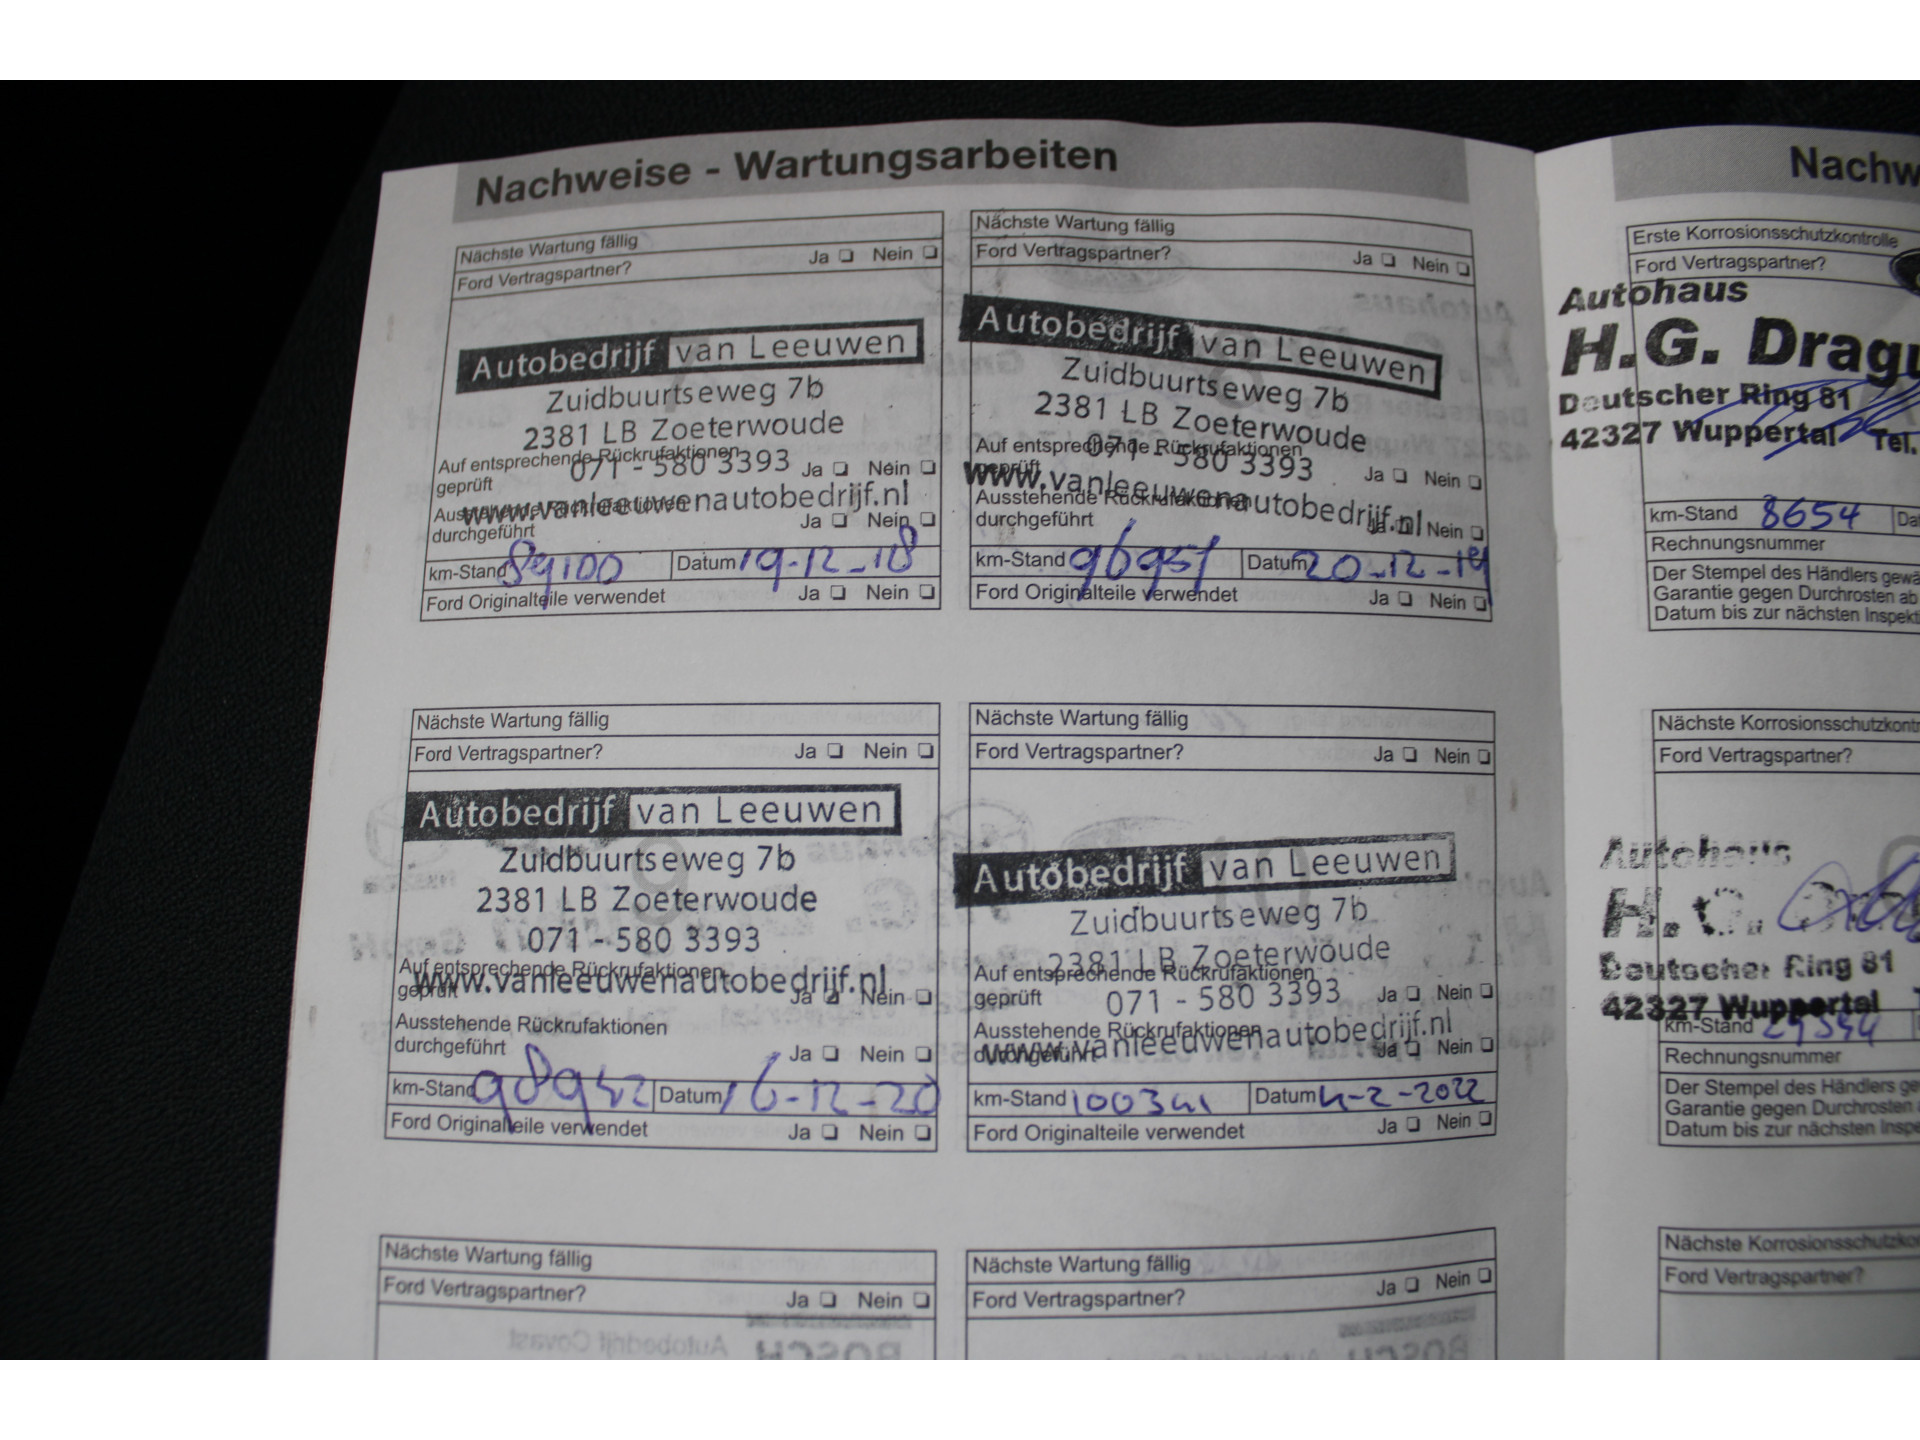 Nachweise - Wartungsarbeiten
Nächste Wartung fällig
Ford Vertragspartner? Ja Nein
Autobedrijf van Leeuwen
Zuidbuurtseweg 7b
2381 LB Zoeterwoude
071 - 580 3393
www.vanleeuwenautobedrijf.nl
Auf entsprechende Rückrufaktionen
geprüft Ja Nein
Ausstehende Rückrufaktionen
durchgeführt Ja Nein
km-Stand 89100 Datum 19-12-18
Ford Originalteile verwendet Ja Nein
Nächste Wartung fällig
Ford Vertragspartner? Ja Nein
Autobedrijf van Leeuwen
Zuidbuurtseweg 7b
2381 LB Zoeterwoude
071 - 580 3393
www.vanleeuwenautobedrijf.nl
Auf entsprechende Rückrufaktionen
geprüft Ja Nein
Ausstehende Rückrufaktionen
durchgeführt Ja Nein
km-Stand 96951 Datum 20-12-19
Ford Originalteile verwendet Ja Nein
Nächste Wartung fällig
Ford Vertragspartner? Ja Nein
Autobedrijf van Leeuwen
Zuidbuurtseweg 7b
2381 LB Zoeterwoude
071 - 580 3393
www.vanleeuwenautobedrijf.nl
Auf entsprechende Rückrufaktionen
geprüft Ja Nein
Ausstehende Rückrufaktionen
durchgeführt Ja Nein
km-Stand Datum 16-12-20
Ford Originalteile verwendet Ja Nein
Nächste Wartung fällig
Ford Vertragspartner? Ja Nein
Autobedrijf van Leeuwen
Zuidbuurtseweg 7b
2381 LB Zoeterwoude
071 - 580 3393
www.vanleeuwenautobedrijf.nl
Auf entsprechende Rückrufaktionen
geprüft Ja Nein
Ausstehende Rückrufaktionen
durchgeführt Ja Nein
km-Stand Datum 4-2-2022
Ford Originalteile verwendet Ja Nein
Nächste Wartung fällig
Ford Vertragspartner? Ja Nein
Nächste Wartung fällig
Ford Vertragspartner? Ja Nein
Nachw
Erste Korrosionsschutzkontrolle
Ford Vertragspartner?
Autohaus
H.G. Dragu
Deutscher Ring 81
42327 Wuppertal Tel.
km-Stand 8654 Da
Rechnungsnummer
Der Stempel des Händlers gewä
Garantie gegen Durchrosten ab
Datum bis zur nächsten Inspekt
Nächste Korrosionsschutzkontr
Ford Vertragspartner?
Autohaus
H.G.
Deutscher Ring 81
42327 Wuppertal
km-Stand
Rechnungsnummer
Der Stempel des Händlers ge
Garantie gegen Durchrosten
Datum bis zur nächsten Inspe
Nächste Korrosionsschutzko
Ford Vertragspartner?